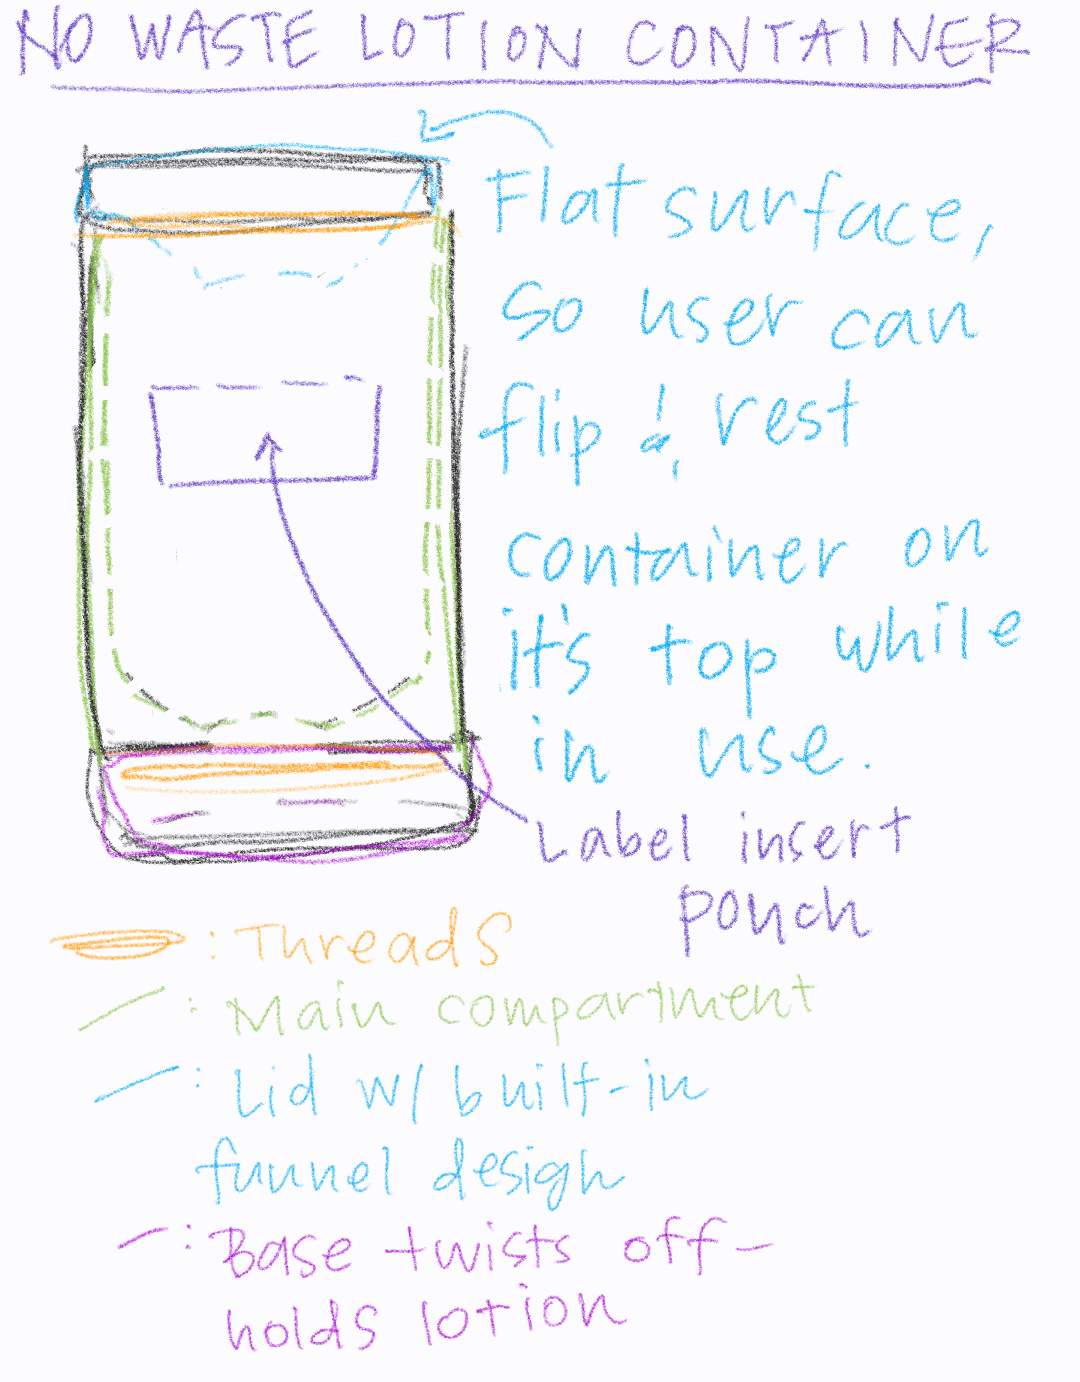 NO WASTE LOTION CONTAINER
Flat surface,
so user can
flip & rest
container on
it's top while
in use.
Label insert
pouch
: Threads
: Main compartment
: Lid w/ built-in
funnel design
: Base twists off -
holds lotion